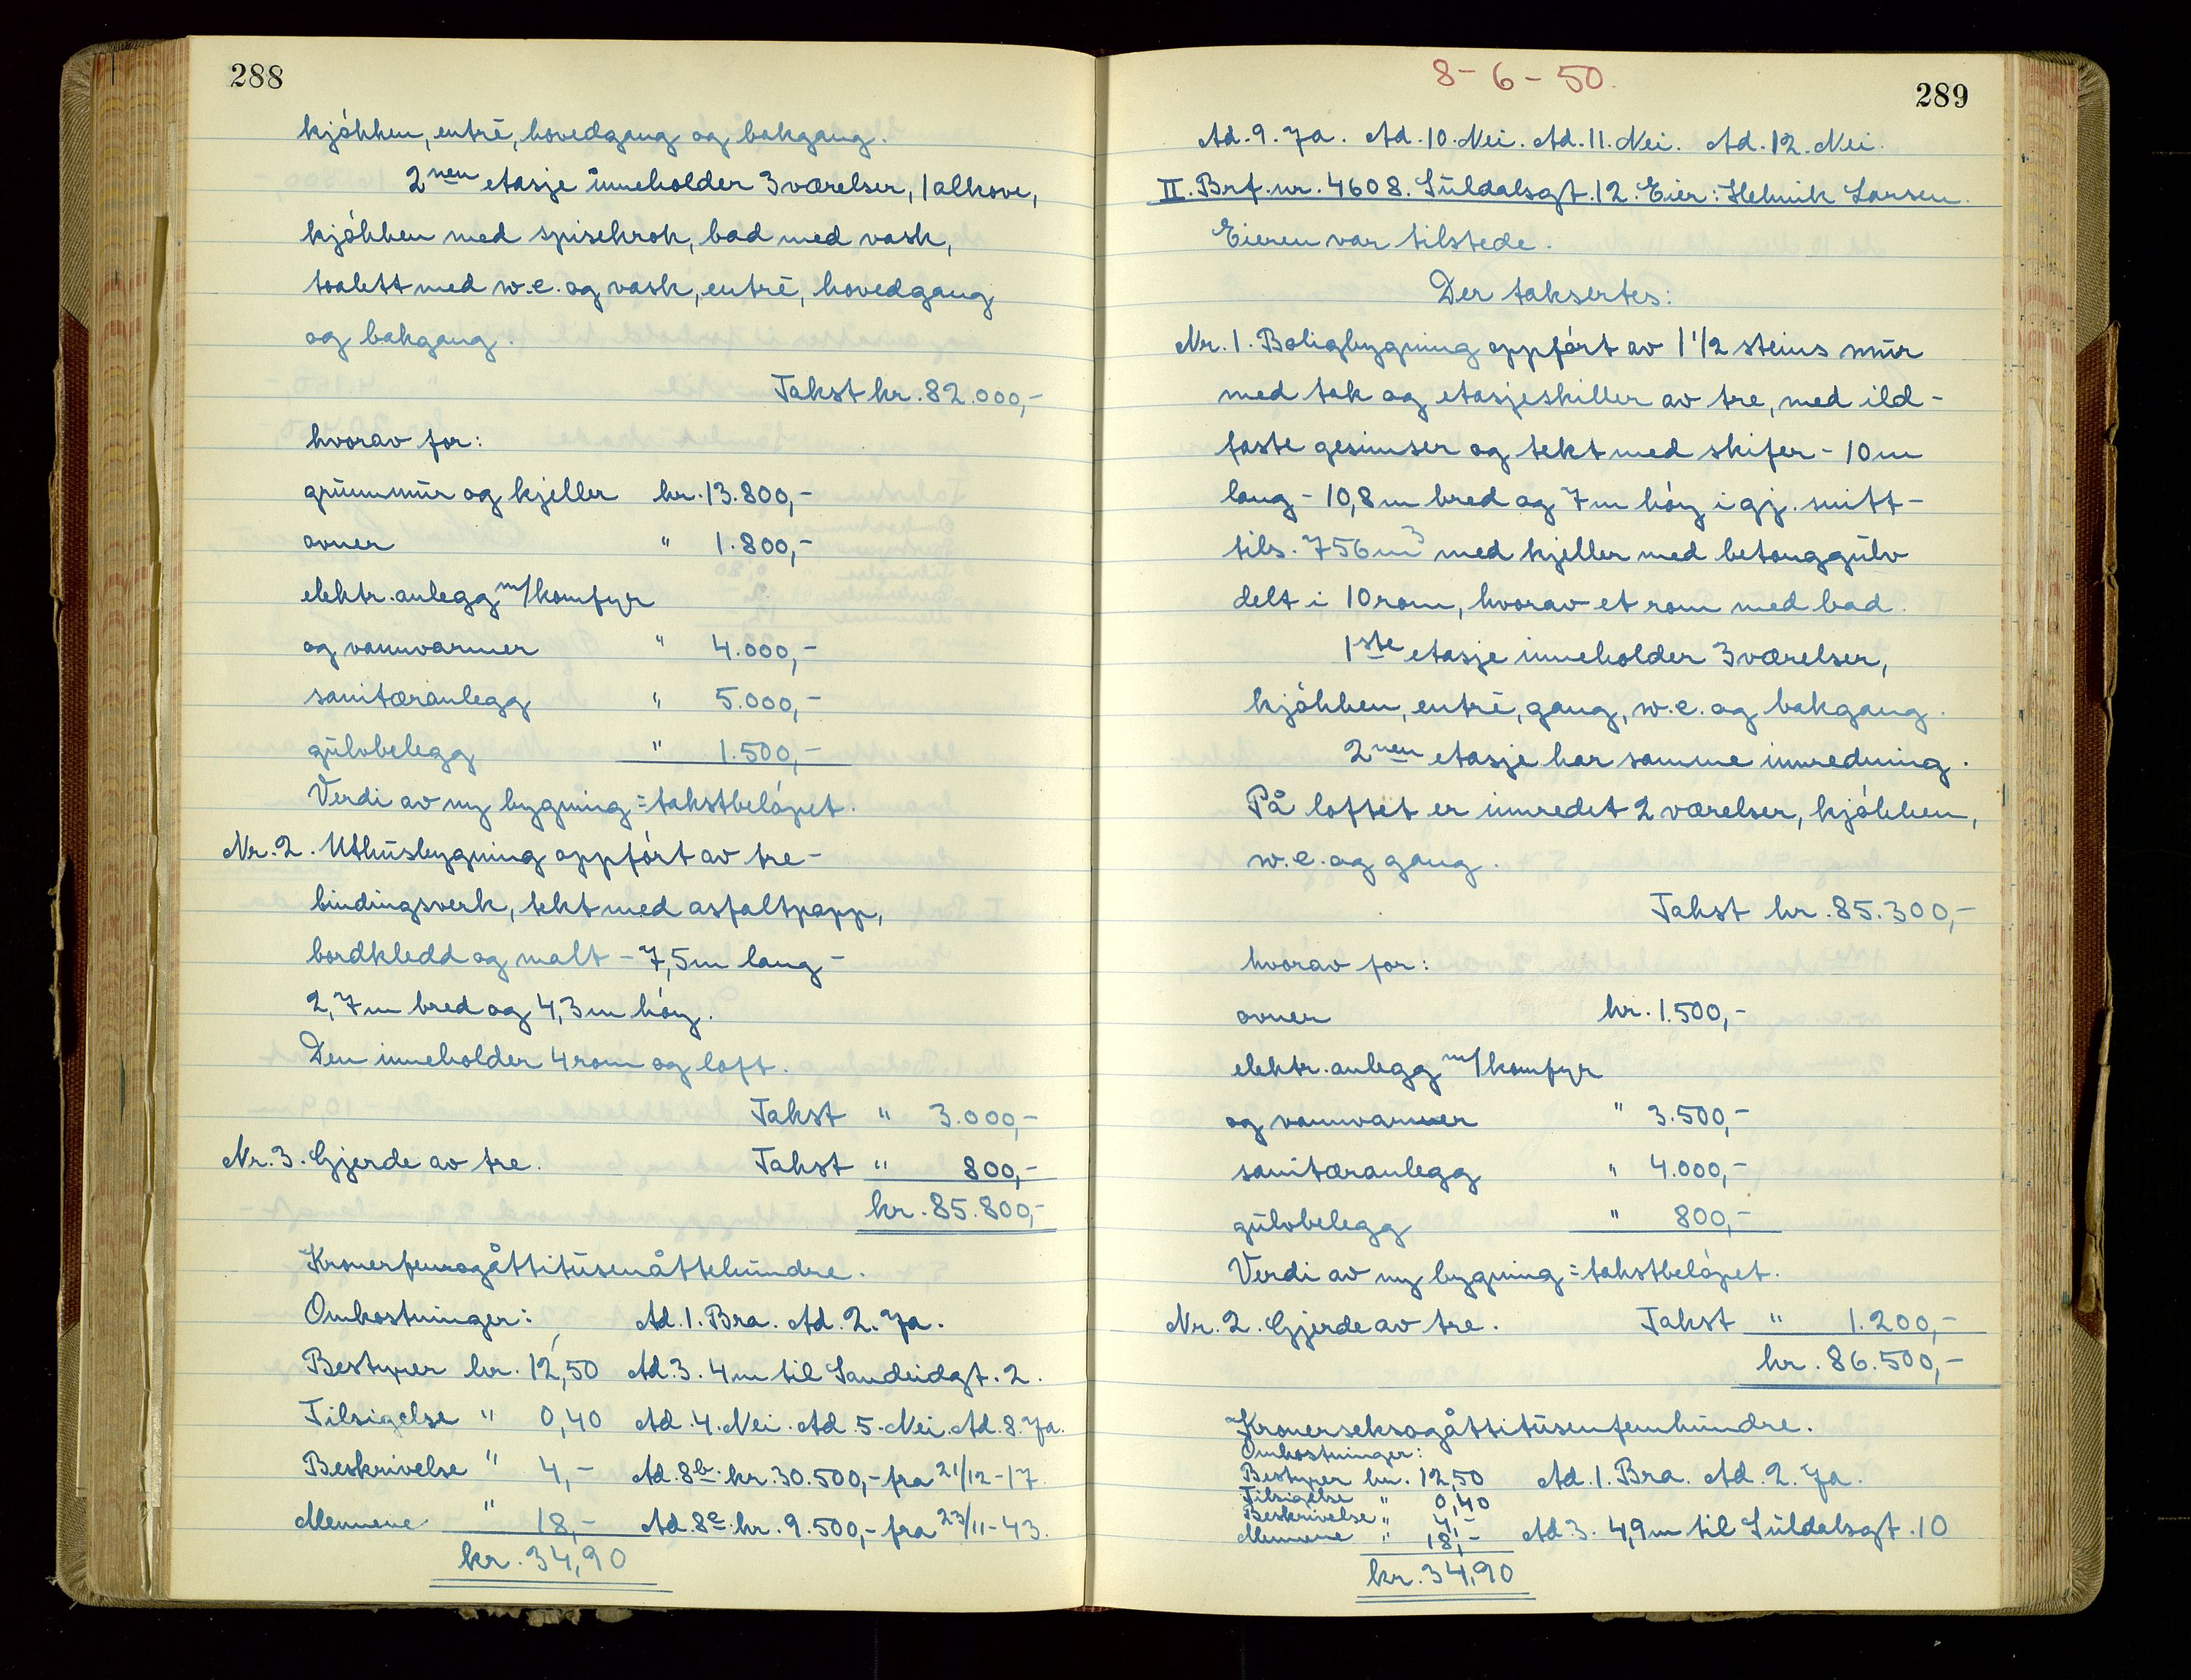 288
kjókken, entré, hovedgang og bakgang.
2nen etasje inneholder 3 værelser, 1 alkove,
kjókken med spisekrok, bad med vask,
toalett med w.c. og vask, entré, hovedgang
og bakgang.
Takst kr. 82.000,-
hvorav for:
grunnmur og kjeller kr. 13.800,-
ovner " 1.800,-
elektr. anlegg m/komfyr
og vannvarmer " 4.000,-
sanitæranlegg " 5.000,-
gulvbelegg " 1.500,-
Verdi av ny bygning = takstbelópet.
Nr. 2. Uthusbygning oppfórt av tre-
bindingsverk, tekt med asfaltpapp,
bordkledd og malt - 7,5m lang -
2,7m bred og 4,3m hóy.
Den inneholder 4 rom og loft.
Takst " 3.000,-
Nr. 3. Gjerde av tre. Takst " 800,-
kr. 85.800,-
Kronerfemogåttitusenåttehundre.
Omkostninger: Ad. 1. Bra. Ad. 2. Ja.
Bestyrer kr. 12,50 Ad. 3. 4m til Sandeidgt. 2.
Tilsigelse " 0,40 Ad. 4. Nei. Ad. 5. Nei. Ad. 8. Ja.
Beskrivelse " 4,- Ad. 8b. kr. 30.500,- fra 21/12-17.
Mennene " 18,- Ad. 8c. kr. 9.500,- fra 23/11-43.
kr. 34,90
8-6-50.
289
Ad. 9. Ja. Ad. 10. Nei. Ad. 11. Nei. Ad. 12. Nei.
II. Brf. nr. 4608. Suldalsgt. 12. Eier: Helmik Larsen.
Eieren var tilstede.
Der taksertes:
Nr. 1. Boligbygning oppfórt av 1 1/2 steins mur
med tak og etasjeskiller av tre, med ild-
faste gesimser og tekt med skifer - 10m
lang - 10,8m bred og 7m hóy i gj. snitt -
tils. 756m3 med kjeller med betonggulv
delt i 10 rom, hvorav et rom med bad.
1ste etasje inneholder 3 værelser,
kjókken, entré, gang, w.c. og bakgang.
2nen etasje har samme innredning.
På loftet er innredet 2 værelser, kjókken,
w.c. og gang.
Takst kr. 85.300,-
hvorav for:
ovner kr. 1.500,-
elektr. anlegg m/komfyr
og vannvarmer " 3.500,-
sanitæranlegg " 4.000,-
gulvbelegg " 800,-
Verdi av ny bygning = takstbelópet.
Nr. 2. Gjerde av tre. Takst " 1.200,-
kr. 86.500,-
Kronerseksogåttitusenfemhundre.
Omkostninger:
Bestyrer kr. 12,50 Ad. 1. Bra. Ad. 2. Ja.
Tilsigelse " 0,40
Beskrivelse " 4,-
Mennene " 18,- Ad 3. 4,9m til Suldalsgt. 10
kr. 34,90